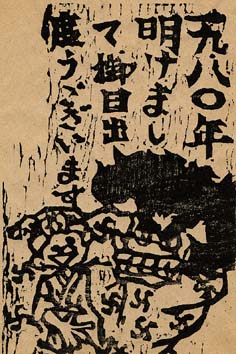 一九八〇年
明けまし
て御目出
度うございます